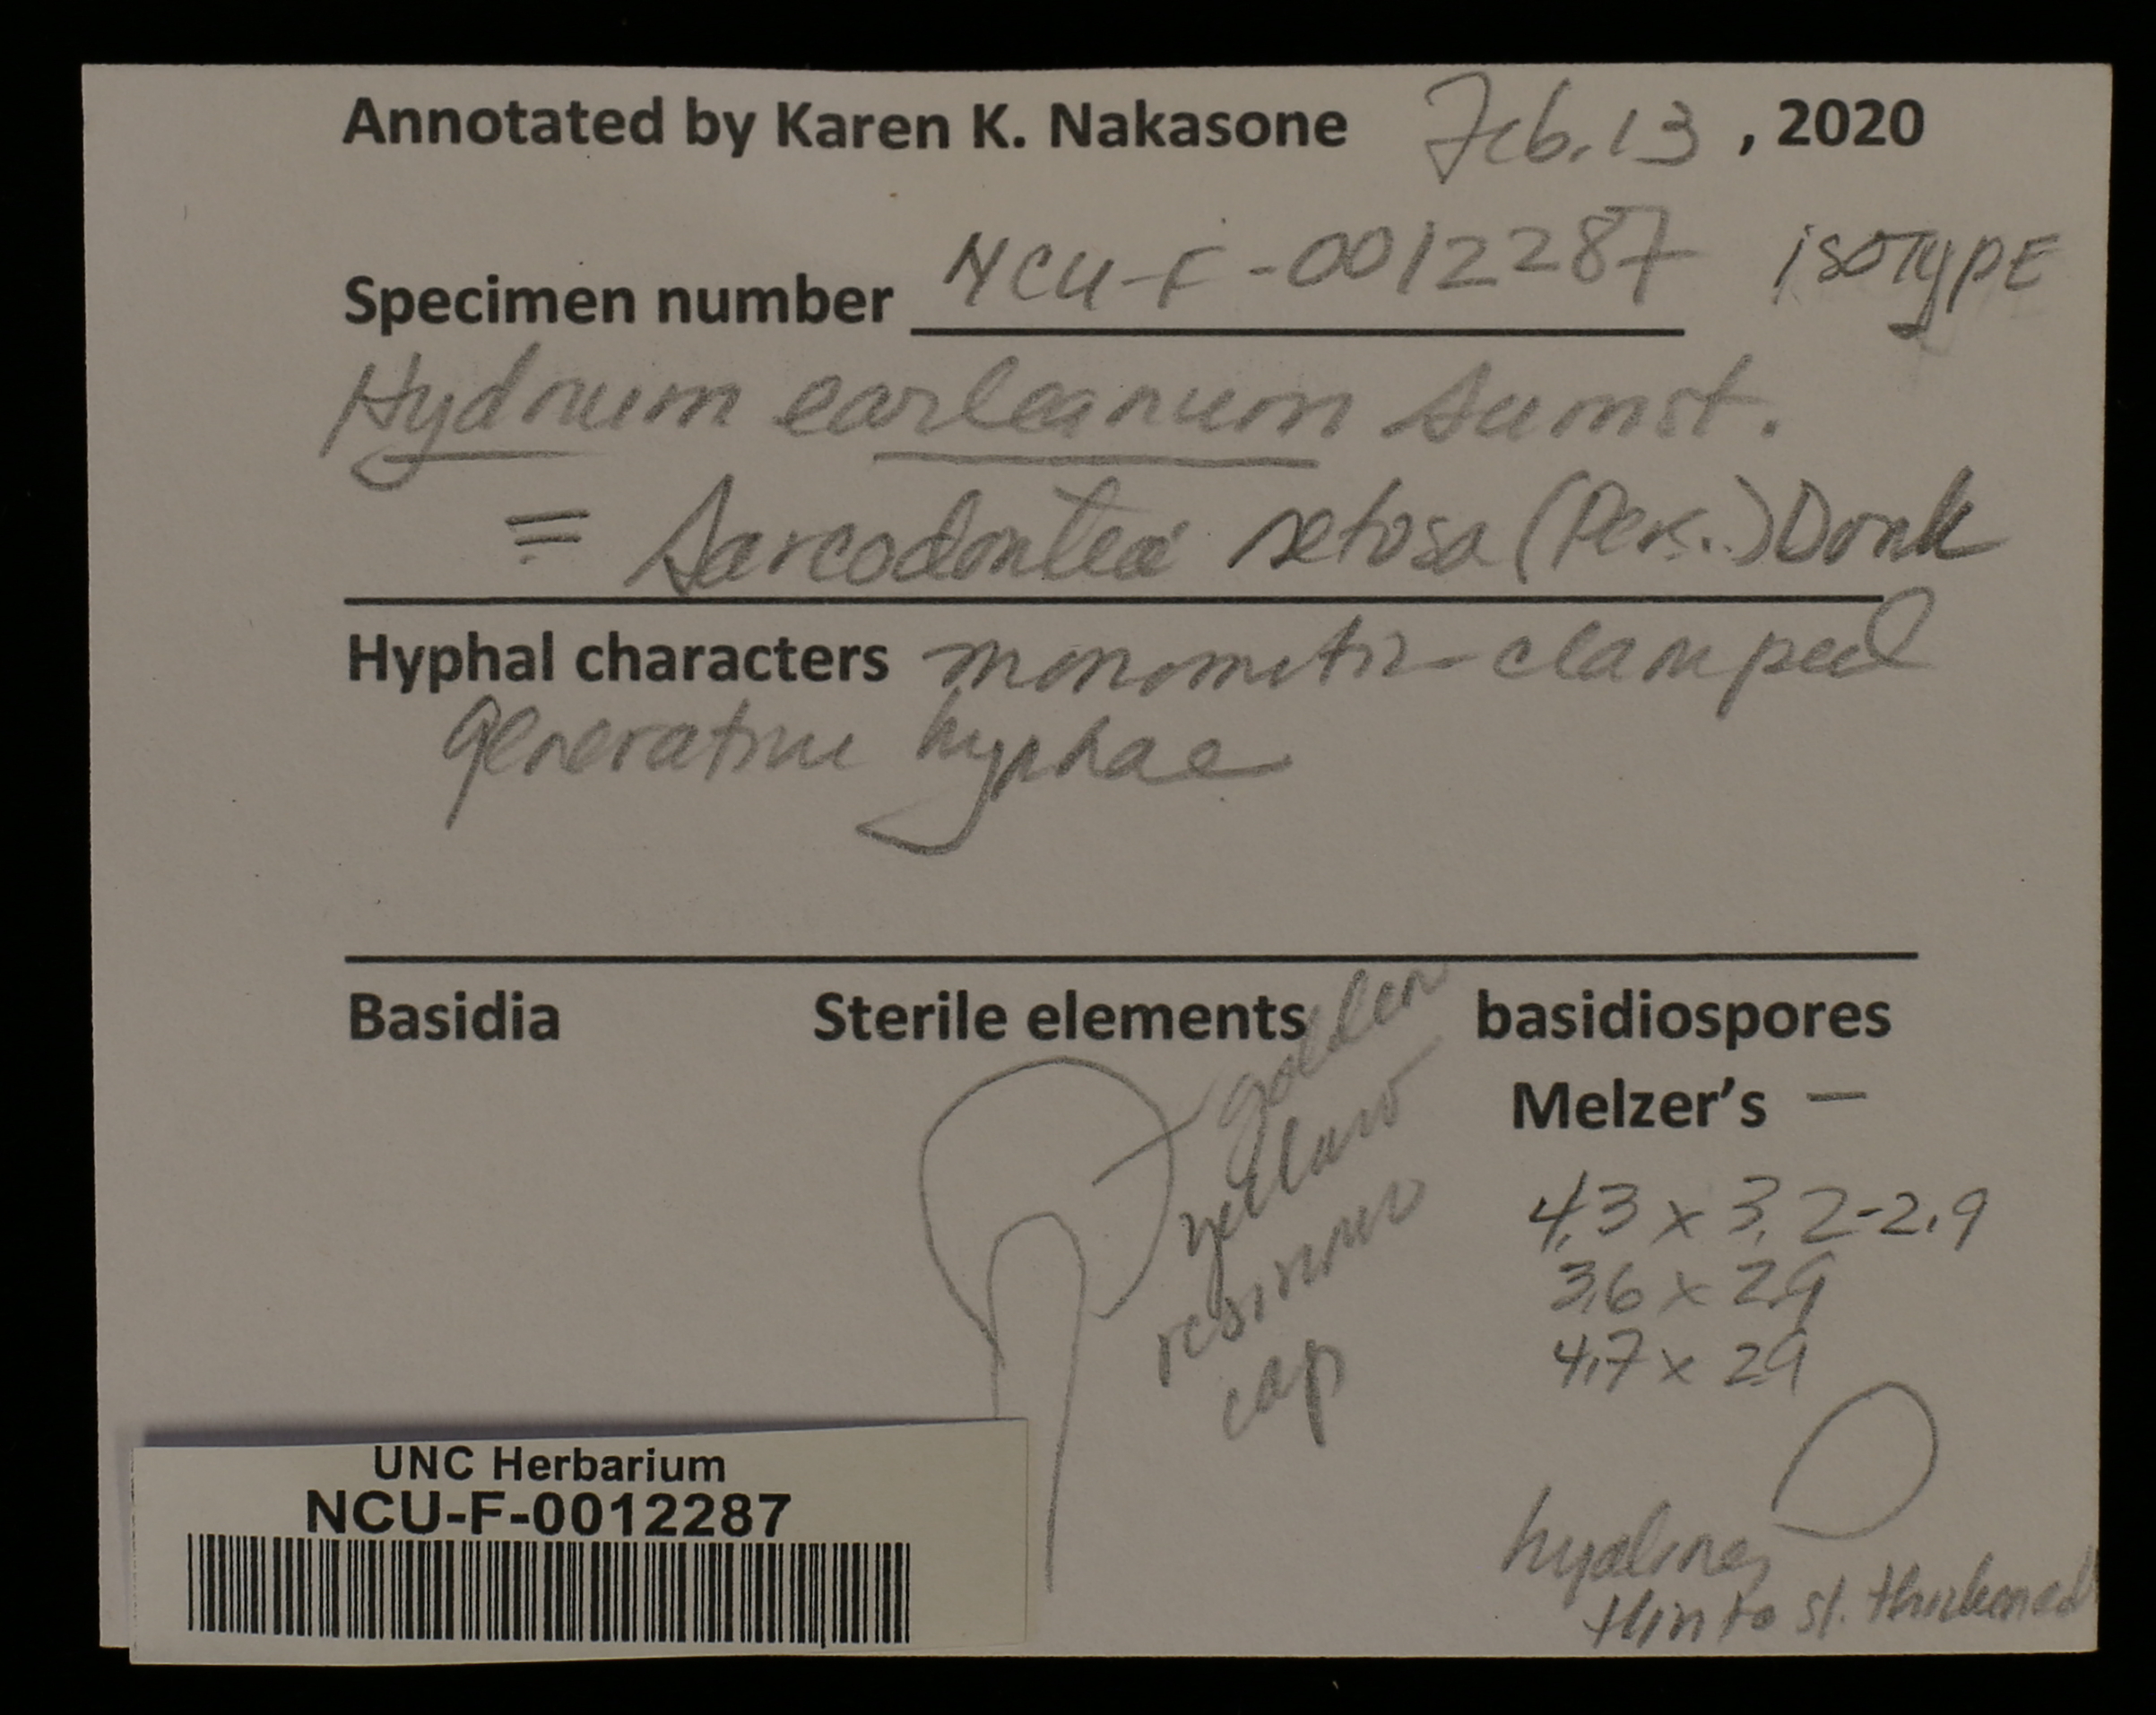 Annotated by Karen K. Nakasone Feb. 13, 2020
Specimen number NCU-F-0012287 isotypE
Hydnum earleanum Sumst.
= Sarcodontia setosa (Pers.) Donk
Hyphal characters monomitic - clamped
generative hyphae
Basidia Sterile elements basidiospores
golden
yellow
resinous
cap
Melzer's —
4.3 x 3.2-2.9
3.6 x 2.9
4.7 x 2.9
hyaline,
thin to sl. thickened
UNC Herbarium
NCU-F-0012287